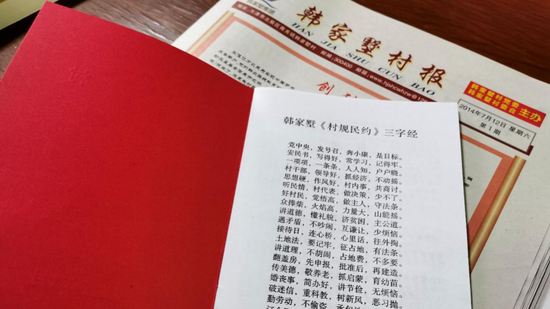 韩家墅村报
HAN JIA SHU CUN BAO
邮编:300400
韩家墅村党委
韩家墅村委会
主办
2014年7月12日 星期六
第1期
创
韩家墅《村规民约》三字经
党中央，发号召，奔小康，是目标。
安民书，写得好，常学习，记得牢。
一项项，一条条，人人知，户户晓。
村干部，领导好，抓经济，不动摇。
思想硬，作风好，村内事，共商讨。
听民情，村代表，做决策，少不了。
好村民，觉悟高，做主人，守法条。
众捧柴，火焰高，力量大，山能摇。
讲道德，懂礼貌，济贫困，主公道。
遇矛盾，不吵闹，互谦让，少烦恼。
接待日，连心桥，心里话，往外掏。
土地法，要记牢，征占地，有法条。
讲道理，不胡闹，占地费，不多要。
翻盖房，先申报，批准后，再建造。
传美德，敬养老，抓启蒙，育幼苗。
婚丧事，简办好，讲节俭，无烦恼。
破迷信，重科教，树新风，恶习抛。
勤劳动，不偷盗，